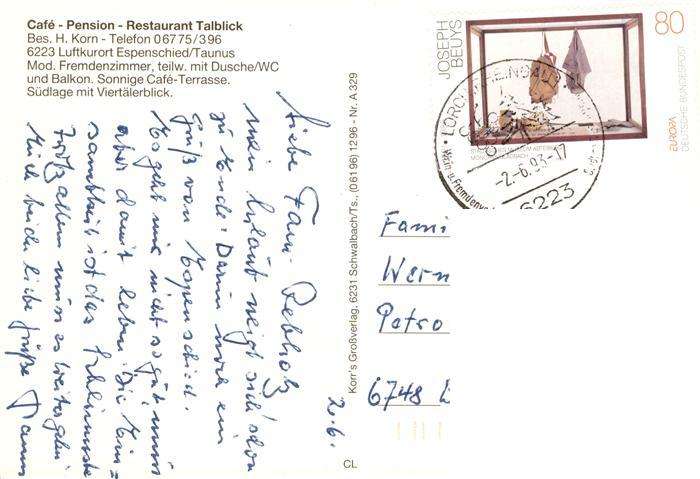 Café - Pension - Restaurant Talblick
Bes. H. Korn - Telefon 06775/396
6223 Luftkurort Espenschied/Taunus
Mod. Fremdenzimmer, teilw. mit Dusche/WC
und Balkon. Sonnige Café-Terrasse.
Südlage mit Viertälerblick.
2.6.
Liebe Fam. Rebholz
mein Urlaub neigt sich schon
zu Ende. Darum noch ein
Gruß von Espenschied.
Es geht mir nicht so gut, muss
aber damit leben. Die Ein=
samkeit ist das Schlimmste
trotz allem muss es weitergehn
Euch beiden liebe Grüße
Korr's Großverlag, 6231 Schwalbach/Ts., (06196) 1296 - Nr. A 329
CL
JOSEPH
BEUYS
80
EUROPA
DEUTSCHE BUNDESPOST
LORCH, RHEINGAU
-2.-6.93.-17
6223
Fami
Wern
Petro
6748